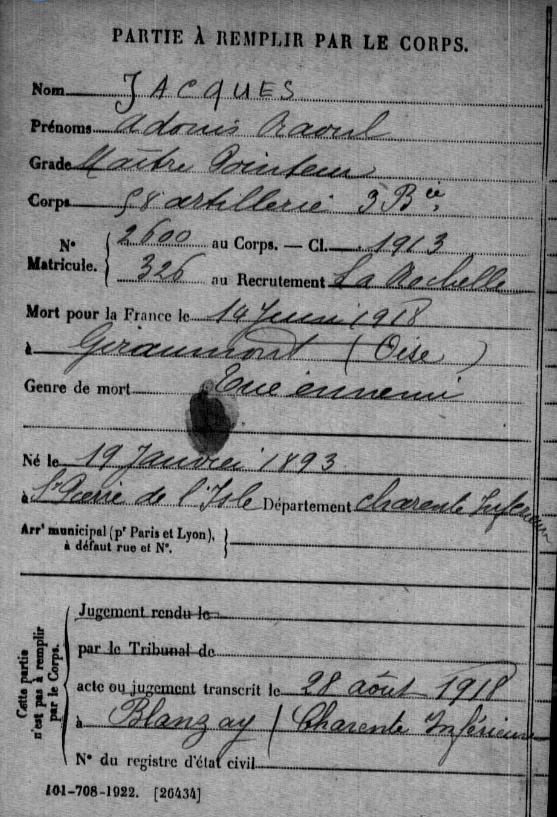 PARTIE À REMPLIR PAR LE CORPS.
Nom JACQUES
Prénoms Adonis Raoul
Grade Maître Pointeur
Corps 58 artillerie 9 Bie
N° Matricule. 2600 au Corps. — Cl. 1913
326 au Recrutement La Rochelle
Mort pour la France le 14 Juin 1918
à Giraumont (Oise)
Genre de mort Tué ennemi
Né le 19 Janvier 1893
à St Pierre de l'Isle Département Charente Inférieure
Arrt municipal (pr Paris et Lyon),
à défaut rue et N°.
Cette partie n'est pas à remplir par le Corps.
Jugement rendu le
par le Tribunal de
acte ou jugement transcrit le 28 août 1918
à Blanzay (Charente Inférieure
N° du registre d'état civil
101-708-1922. [26434]